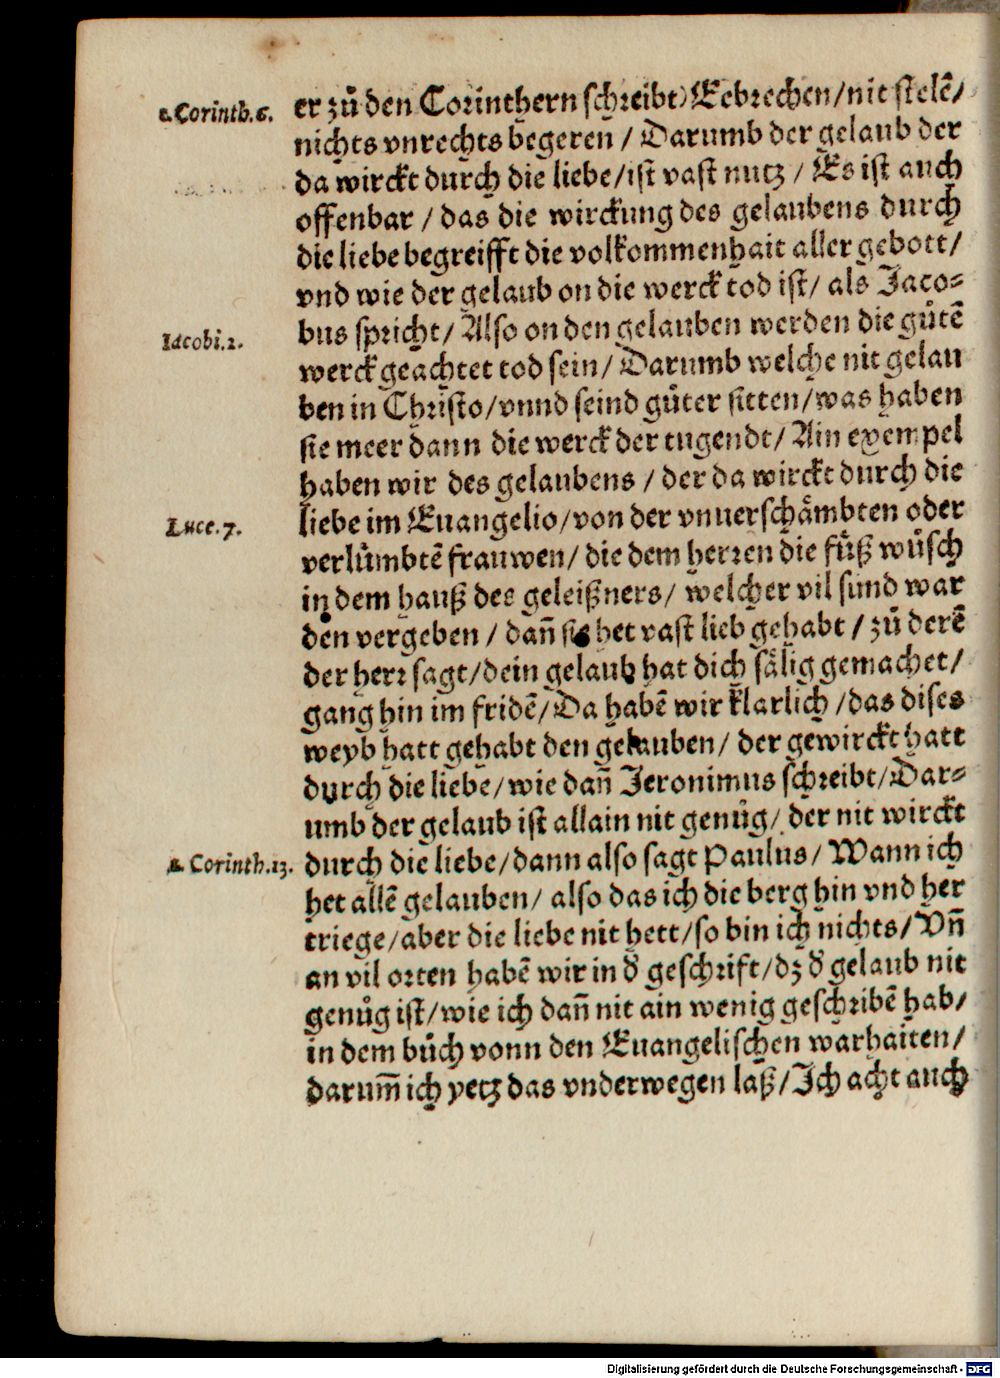 1. Corinth. 6.
er zů den Corinthern schreibt) Eebrechen / nit stelē /
nichts vnrechts begeren / Darumb der gelaub der
da wirckt durch die liebe / ist vast nutz / Es ist auch
offenbar / das die wirckung des gelaubens durch
die liebe begreifft die volkommenhait aller gebott /
vnd wie der gelaub on die werck tod ist / als Jaco⸗
Iacobi. 2.
bus spricht / Also on den gelauben werden die gůtē
werck geachtet tod sein / Darumb welche nit gelau
ben in Christo / vnnd seind gůter sitten / was haben
sie meer dann die werck der tugendt / Ain exempel
haben wir des gelaubens / der da wirckt durch die
Luce. 7.
liebe im Euangelio / von der vnuerschåmbten oder
verlůmbtē frauwen / die dem herren die fůß wůsch
in dem hauß des geleißners / welcher vil sünd war
den vergeben / dañ sie het vast lieb gehabt / zů derē
der herr sagt / dein gelaub hat dich sålig gemachet /
gang hin im fridē / Da habē wir klarlich / das dises
weyb hatt gehabt den gelauben / der gewirckt hatt
durch die liebe / wie dañ Jeronimus schreibt / Dar⸗
umb der gelaub ist allain nit genůg / der nit wirckt
1. Corinth. 13.
durch die liebe / dann also sagt Paulus / Wann ich
het allē gelauben / also das ich die berg hin vnd her
triege / aber die liebe nit hett / so bin ich nichts / Vñ
an vil orten habē wir in d̄ geschrift / dz d̄ gelaub nit
genůg ist / wie ich dañ nit ain wenig geschribē hab /
in dem bůch vonn den Euangelischen warhaiten /
darum̄ ich yetz das vnderwegen laß / Ich acht auch
Digitalisierung gefördert durch die Deutsche Forschungsgemeinschaft - DFG